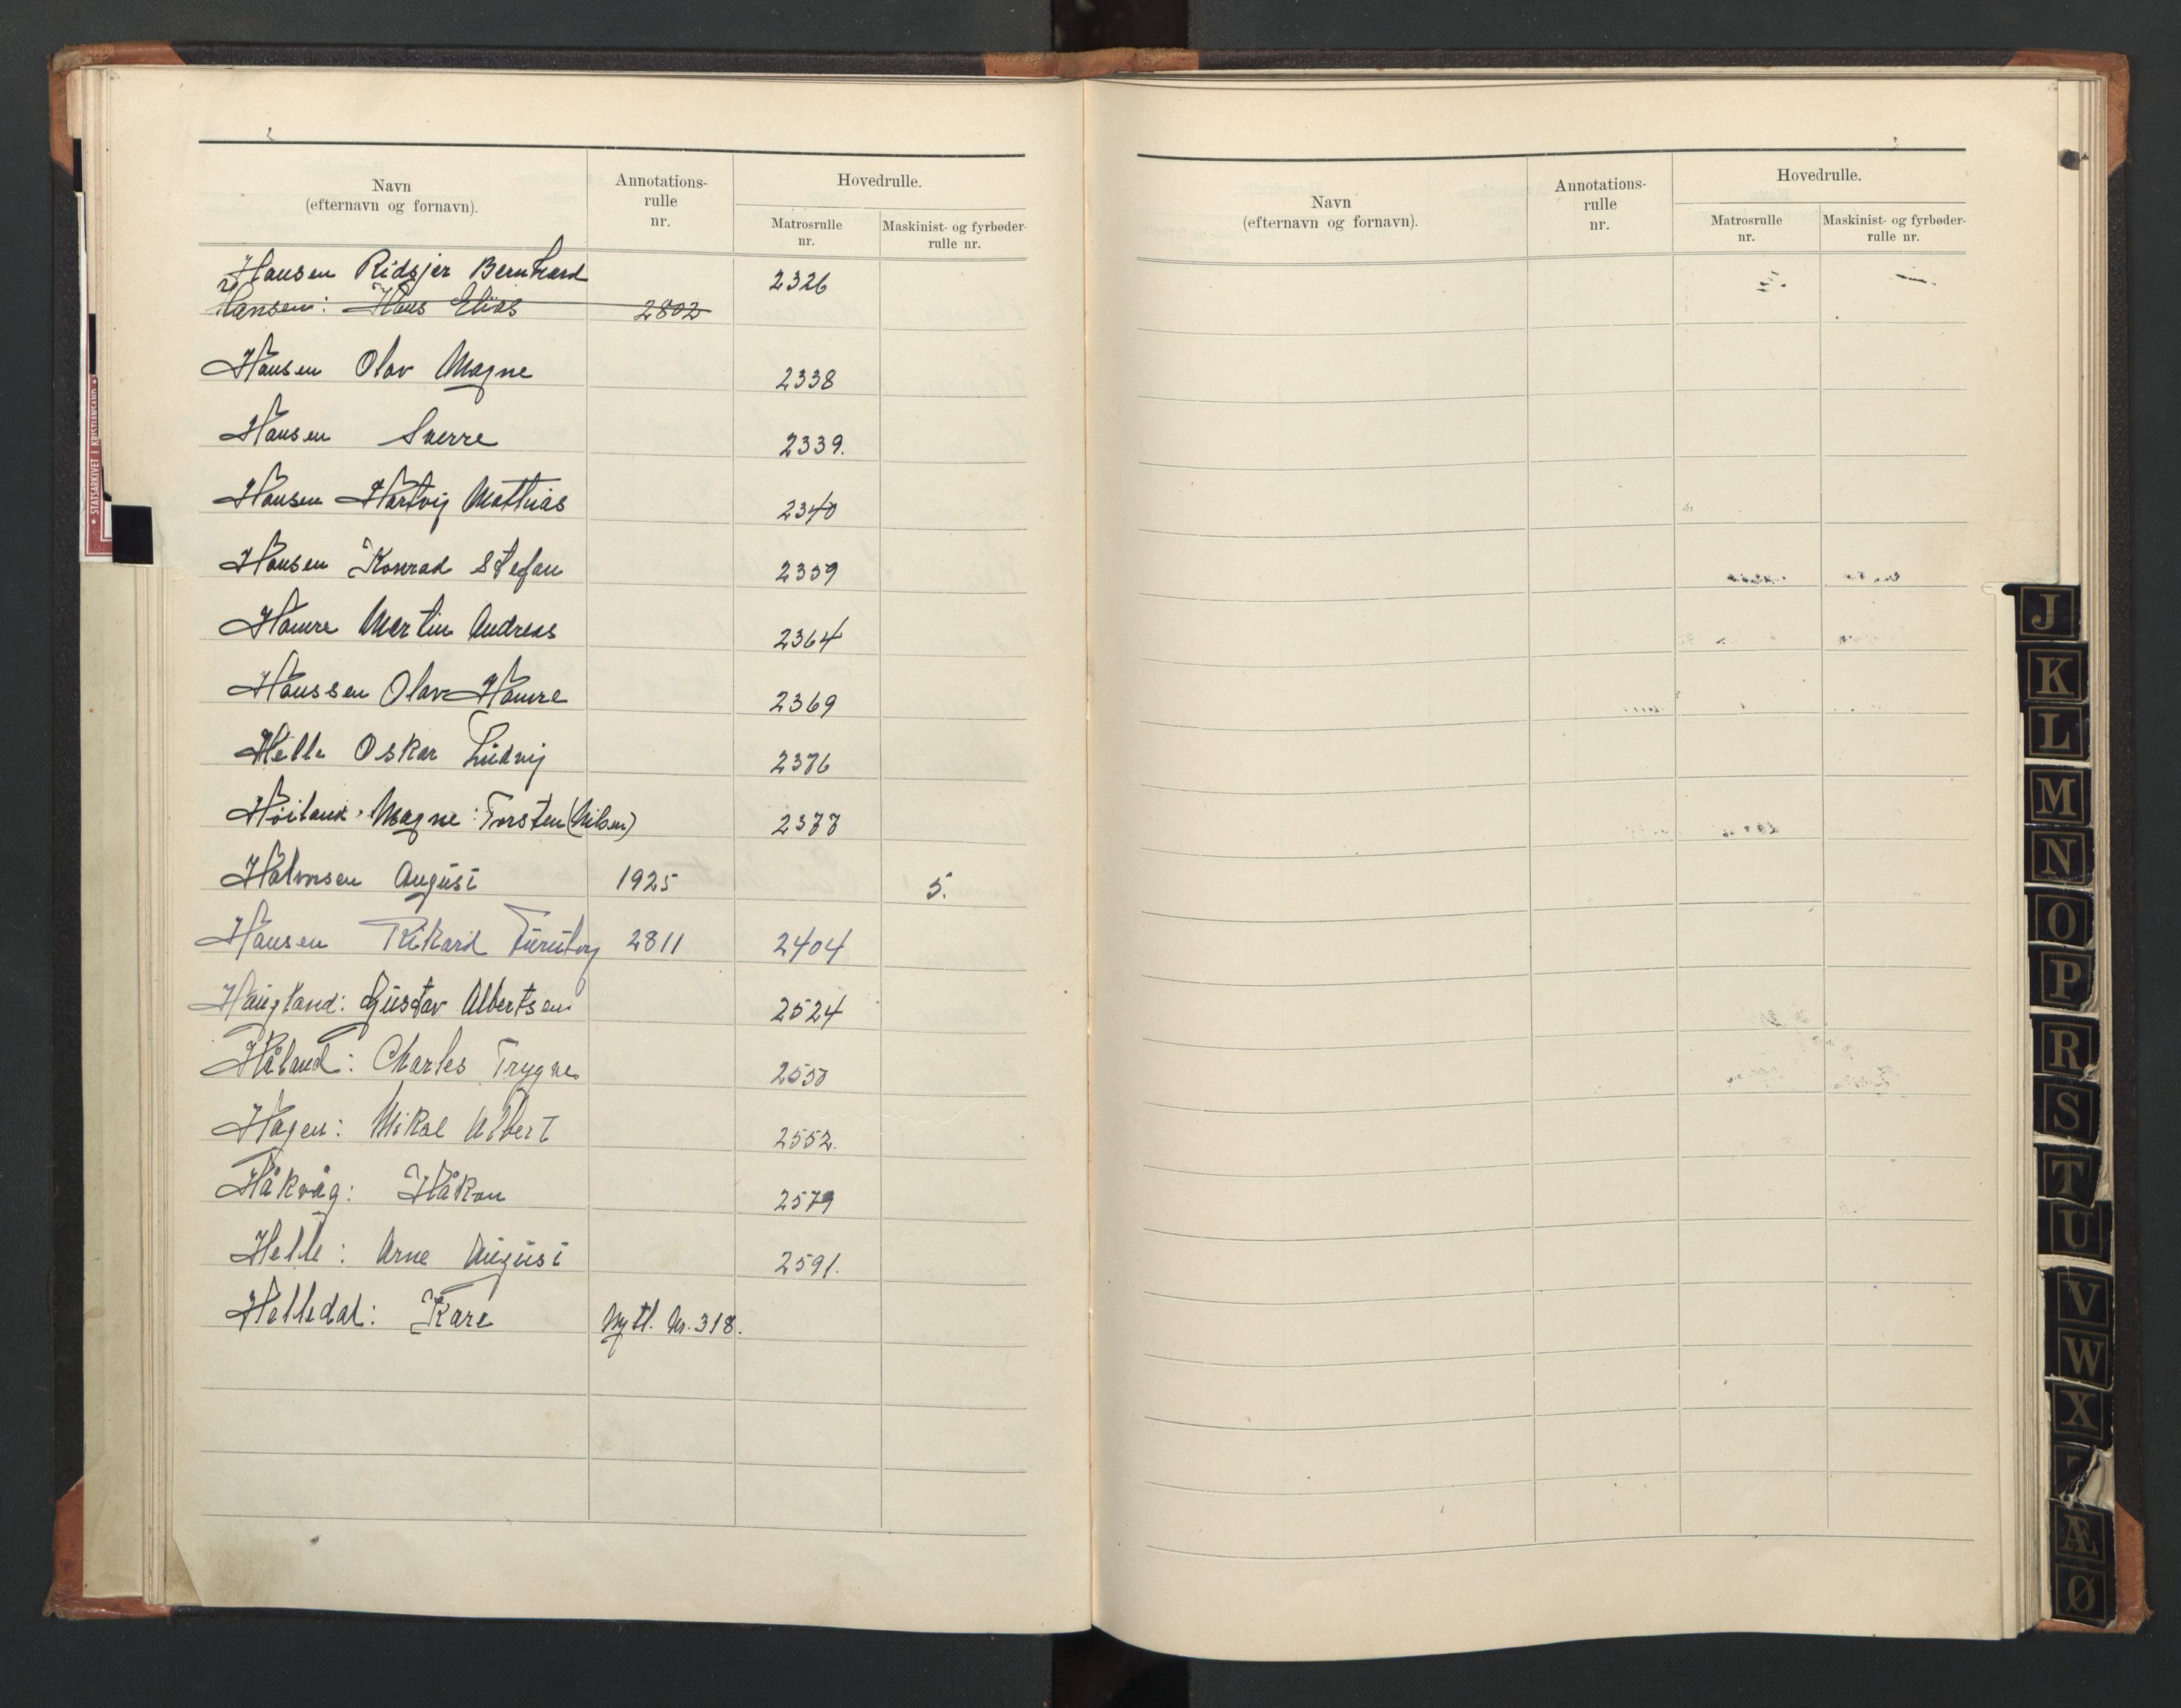 Navn
(efternavn og fornavn).
Annotations-
rulle
nr.
Hovedrulle.
Matrosrulle
nr.
Maskinist- og fyrbøder-
rulle nr.
Hansen Ridsjer Bernhard 2326
Hansen: Hans Elias 2802
Hansen Olav Magne 2338
Hansen Sverre 2339.
Hansen Hartvig Mathias 2340
Hansen Konrad Stefan 2359
Hamre Martin Andreas 2364
Hanssen Olav Hamre 2369
Helle Oskar Ludvig 2376
Høiland Magne Torsten (Nilsen) 2377
Halvorsen August 1925 5.
Hansen Rikard 2811 2404
Haugland: Gustav Albertsen 2524
Håland: Charles Trygve 2550
Hagen: Mikal Albert 2552.
Håkvåg: Håkon 2579
Helle: Arne August 2591.
Helledal: Kåre Mytl. Nr. 318.
Navn
(efternavn og fornavn).
Annotations-
rulle
nr.
Hovedrulle.
Matrosrulle
nr.
Maskinist- og fyrbøder-
rulle nr.
J
K
L
M
N
O
P
R
S
T
U
V
W
X
Æ
Ø
• STATSARKIVET I KRISTIANSAND •